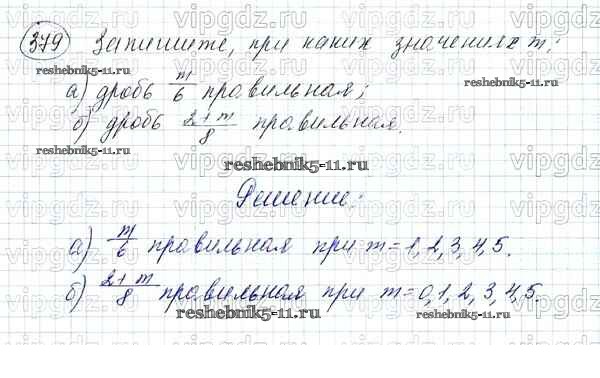 vipgdz.ru vipgdz.ru vipgdz.ru
379 Запишите, при каких значениях m:
reshebnik5-11.ru
а) дробь m/6 правильная;
reshebnik5-11.ru
б) дробь 2+m/8 правильная.
reshebnik5-11.ru
Решение:
а) m/6 правильная при m=1,2,3,4,5.
reshebnik5-11.ru
б) 2+m/8 правильная при m=0,1,2,3,4,5.
reshebnik5-11.ru
reshebnik5-11.ru